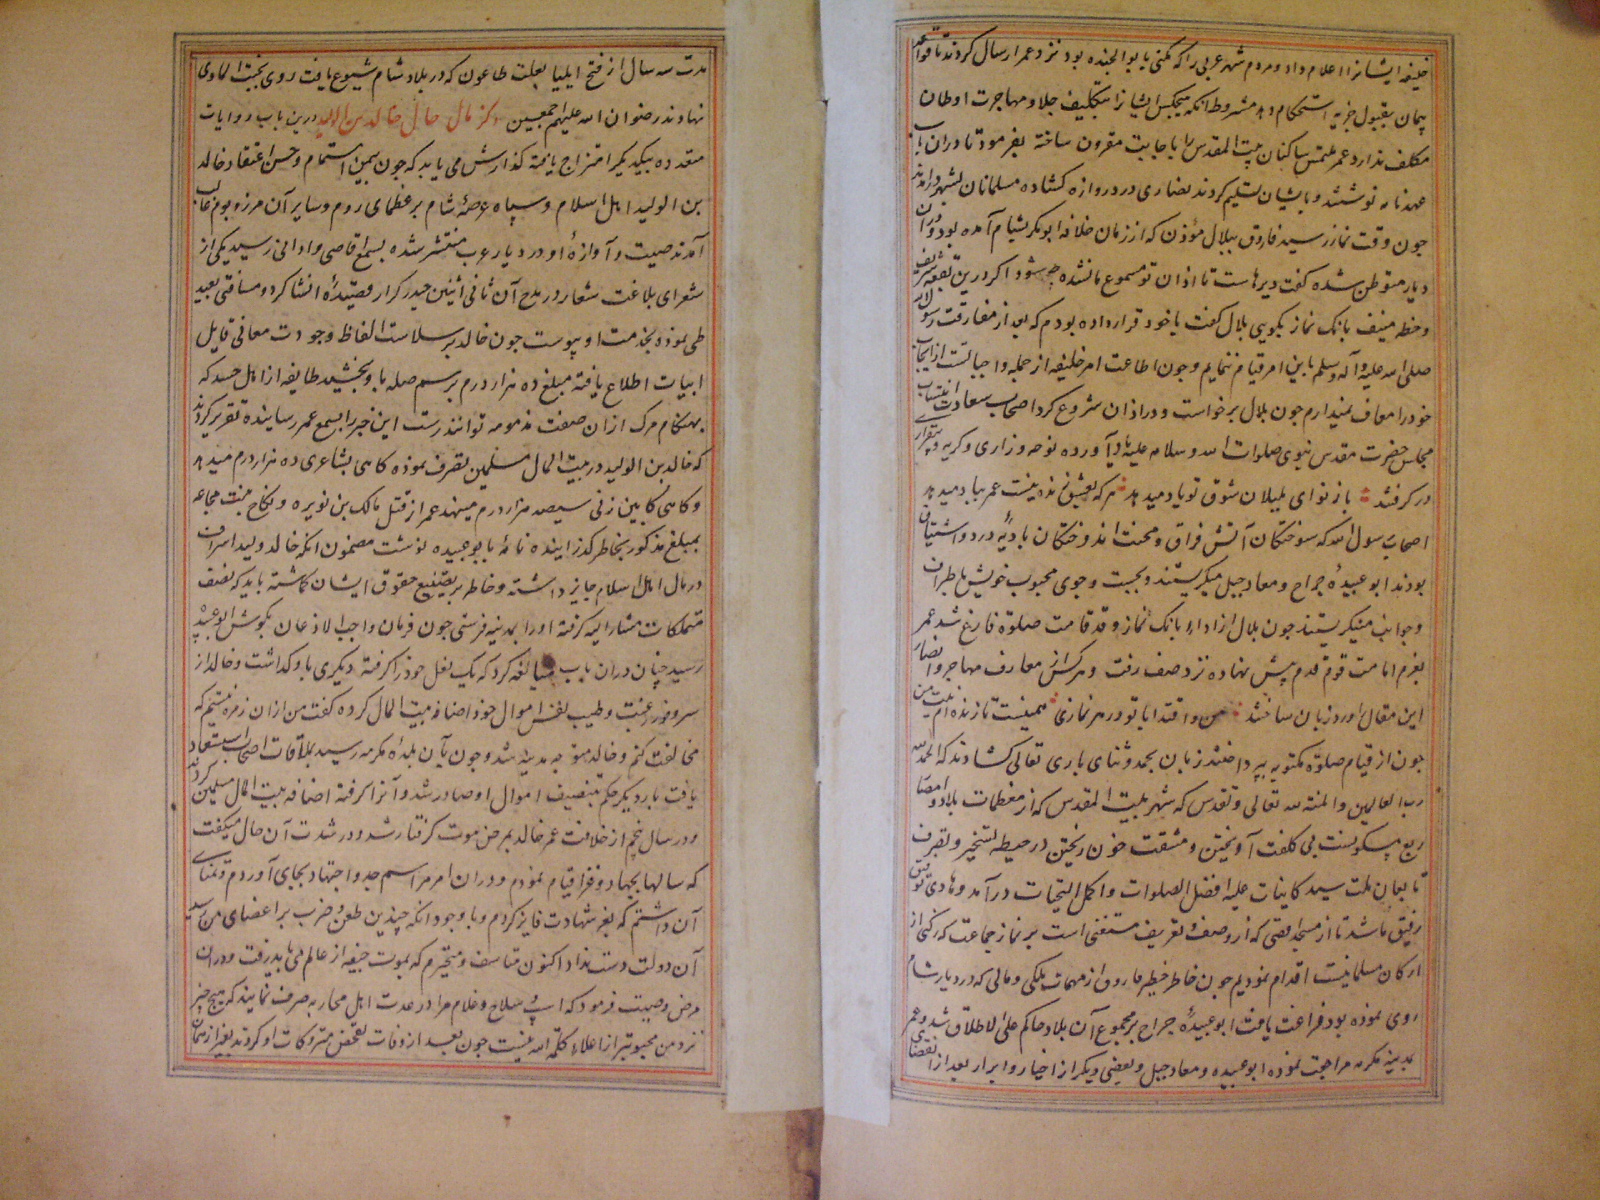 خلیفه ایشانرا اعلام داد و مردم شهر عربی را که مکنی بابو الجنده بود نزد عمر ارسال کردند تا قواعد
پیمان بقبول جزیه استحکام دهد مشروط آنکه هیچکس ایشانرا بتکلیف جلا و مهاجرت اوطان
مکلف ندارد عمر ملتمس ساکنان بیت المقدس را باجابت مقرون ساخته بفرمود تا دران باب
عهدنامه نوشتند و بایشان تسلیم کردند نصاری در دروازه کشاده مسلمانان بشهر درآمدند
چون وقت نماز رسید فاروق ببلال مؤذن که از زمان خلافة ابو بکر بشام آمده بود و دران
دیار متوطن شده کفت دیرهاست تا اذان تو مسموع ما نشده چه شود اکر درین بقعه شریف
و خطه منیف بانک نماز بکویی بلال کفت با خود قرار داده بودم که بعد از مفارقت رسول الله
صلی الله علیه و آله وسلم باین امر قیام ننمایم و چون اطاعت امر خلیفه از جمله واجباتست از ایجاب
خود را معاف نمیدارم چون بلال برخواست و در اذان شروع کرد اصحاب سعادت انتساب
مجلس حضرت مقدس نبوی صلوات الله وسلامه علیه بیاد آورده نوحه و زاری و کریه و بیقراری
در کرفتند باز نوای بلبلان شوق تو یاد میدهد هر که بعشق زنده نیست عمر بباد میدهد
اصحاب رسول الله که سوختکان آتش فراق و محنت اندوختکان بادیه درد و اشتیاق
بودند ابو عبیده جراح و معاذ جبل میکریستند و بجست و جوی محبوب خویش باطراف
و جوانب مینکریستند چون بلال از اداء بانک نماز و قد قامت صلوة فارغ شد عمر
بعزم امامت قوم قدم پیش نهاده نزد صف رفت و هرکس از معارف مهاجر و انصار
این مقال اورد زبان ساختند من و اقتدا با تو در هر نمازی همینست تا زنده ام نیت من
چون از قیام صلوة مکتوبه بپرداختند زبان بحمد و ثنای باری تعالی کشادند که الحمد لله
رب العالمین و المنة لله تعالی و تقدس که شهر بیت المقدس که از معظمات بلاد و امصار
ربع مسکونست بی کلفت آویختن و مشقت خون ریختن در حیطه تسخیر و تصرف
تابعان ملت سید کاینات علیه افضل الصلوات و اکمل التحیات درآمد و هادی توفیق
رفیق ما شد تا از مسجد اقصی که از وصف و تعریف مستغنی است بر نماز جماعت که رکنی از
ارکان مسلمانیست اقدام نمودیم چون خاطر خطیر فاروق از مهمات ملکی و مالی که در دیار شام
روی نموده بود فراغت یافت ابو عبیده جراح بر مجموع آن بلاد حاکم علی الاطلاق شد و عمر
بمدینه مکرمه مراجعت نموده ابو عبیده و معاذ جبل و بعضی دیکر از اخیار و ابرار بعد از انقضای
مدت سه سال از فتح ایلیا بعلت طاعون که در بلاد شام شیوع یافت روی بجنت الماوی
نهادند رضوان الله علیهم اجمعین ذکر مال حال خالد بن الولید درین باب روایات
متعدده بیکدیکر امتزاج یافته کذارش می یابد که چون بیمن اهتمام و حسن اعتقاد خالد
بن الولید اهل اسلام و سپاه عرصه شام بر عظمای روم و سایر آن مرز و بوم غالب
آمدند صیت و آوازه او در دیار عرب منتشر شده بسمع اقاصی و ادانی رسید یکی از
شعرای بلاغت شعار در مدح آن ثانی اثنین حیدر کرار قصیده انشا کرد و مسافتی بعید
طی نموده بخدمت او پیوست چون خالد بر سلاست الفاظ و جودت معانی قایل
ابیات اطلاع یافته مبلغ ده هزار درم برسم صله باو بخشید طایفه از اهل حسد که
بهنکام مرک ازان صفت مذمومه نتوانند رست این خبر را بسمع عمر رسانیده تقریر کردند
که خالد بن الولید در بیت المال مسلمین تصرف نموده کاهی بشاعری ده هزار درم میدهد
و کاهی کابین زنی سیصد هزار درم مینهد عمر از قتل مالک بن نویره و نکاح بنت مجاعه
بمبلغ مذکور بخاطر کذرانیده نامه بابو عبیده نوشت مضمون آنکه خالد ولید اسراف
در مال اهل اسلام جایز داشته و خاطر بر تضییع حقوق ایشان کماشته باید که نصف
متملکات مشار الیه کرفته او را بمدینه فرستی چون فرمان واجب الاذعان بکوش ابو عبیده
رسید چنان دران باب مبالغه کرد که یک نعل خود را کرفته دیکری باو کذاشت و خالد از
سر وفور رغبت و طیب نفس اموال خود اضافه بیت المال کرده کفت من ازان زمره نیستم که
مخالفت کنم و خالد متوجه مدینه شد و چون بآن بلده مکرمه رسید بملاقات اصحاب استسعاد
یافت بار دیکر حکم بتنصیف اموال او صادر شد و آنرا کرفته اضافه بیت المال مسلمین کردند
و در سال پنجم از خلافت عمر خالد بمرض موت کرفتار شد و در شدت آن حال میکفت
که سالها بجهاد و غزا قیام نمودم و دران امر مراسم جد و اجتهاد بجای آوردم و تمنای
آن داشتم که بعز شهادت فایز کردم و با وجود آنکه چندین طعن و ضرب بر اعضای من رسید
آن دولت دست نداد اکنون متاسف و متحیرم که بموت جیفه از عالم می باید رفت و دران
مرض وصیت فرمود که اسپ و سلاح و غلام مرا در عدت اهل محاربه صرف نمایند که هیچ چیز
نزد من محبوبتر از اعلاء کلمة الله نیست چون بعد از وفات تفحص متروکات او کردند بغیر ازان